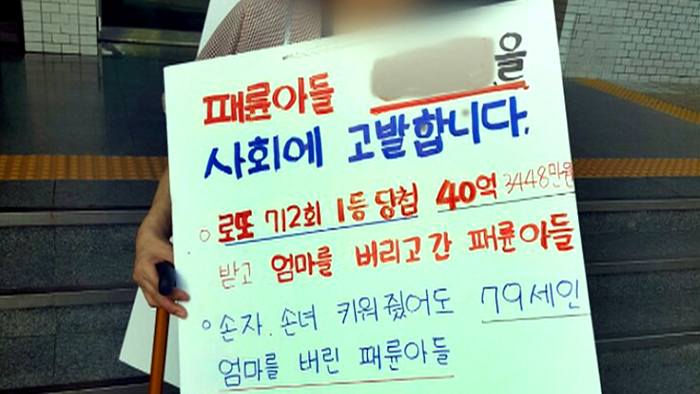 패륜아들 을
사회에 고발합니다.
○ 로또 712회 1등 당첨 40억 3448만원
받고 엄마를 버리고 간 패륜아들
○ 손자.손녀 키워줬어도 79세인
엄마를 버린 패륜아들